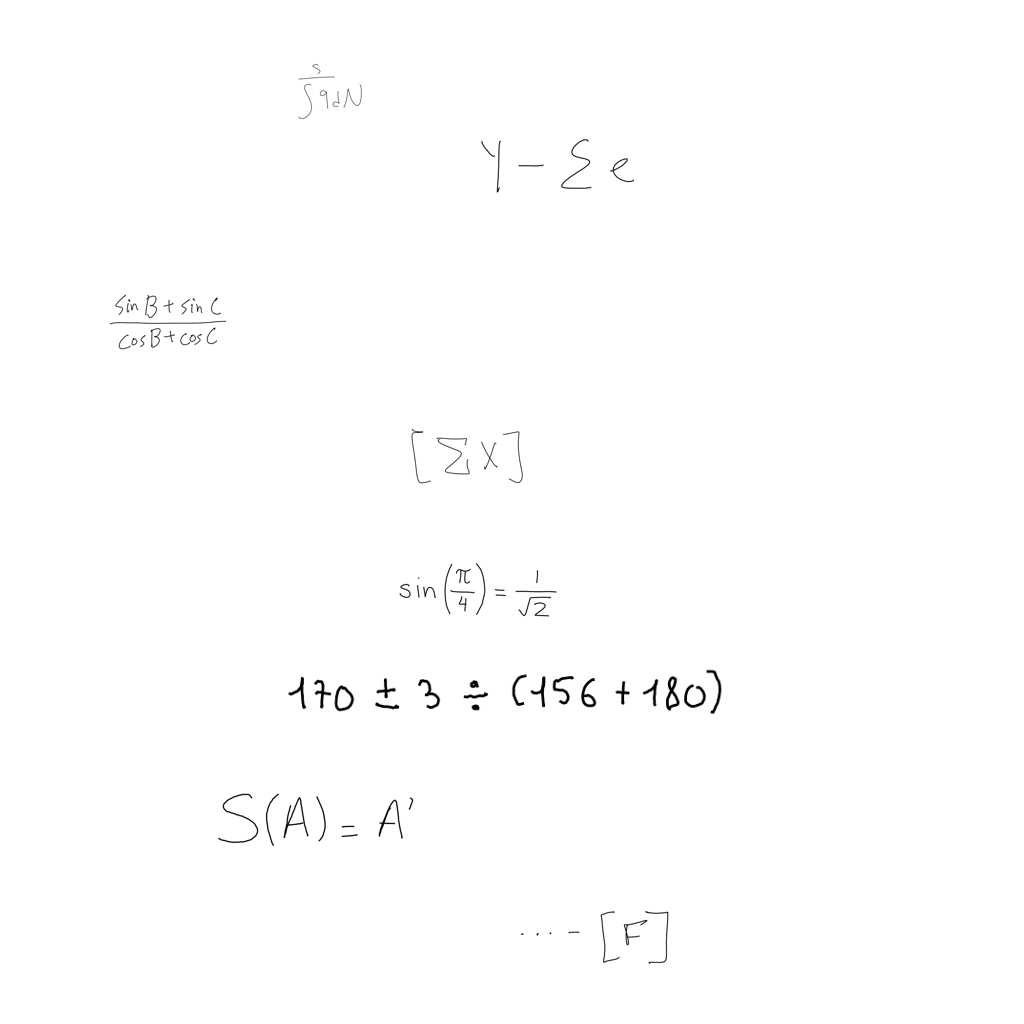 \frac{s}{\int q dN}
Y - \sum e
\frac{\sin B + \sin C}{\cos B + \cos C}
[\sum X]
\sin\left(\frac{\pi}{4}\right) = \frac{1}{\sqrt{2}}
170 ± 3 ÷ (156 + 180)
S(A) = A'
\cdots - [F]